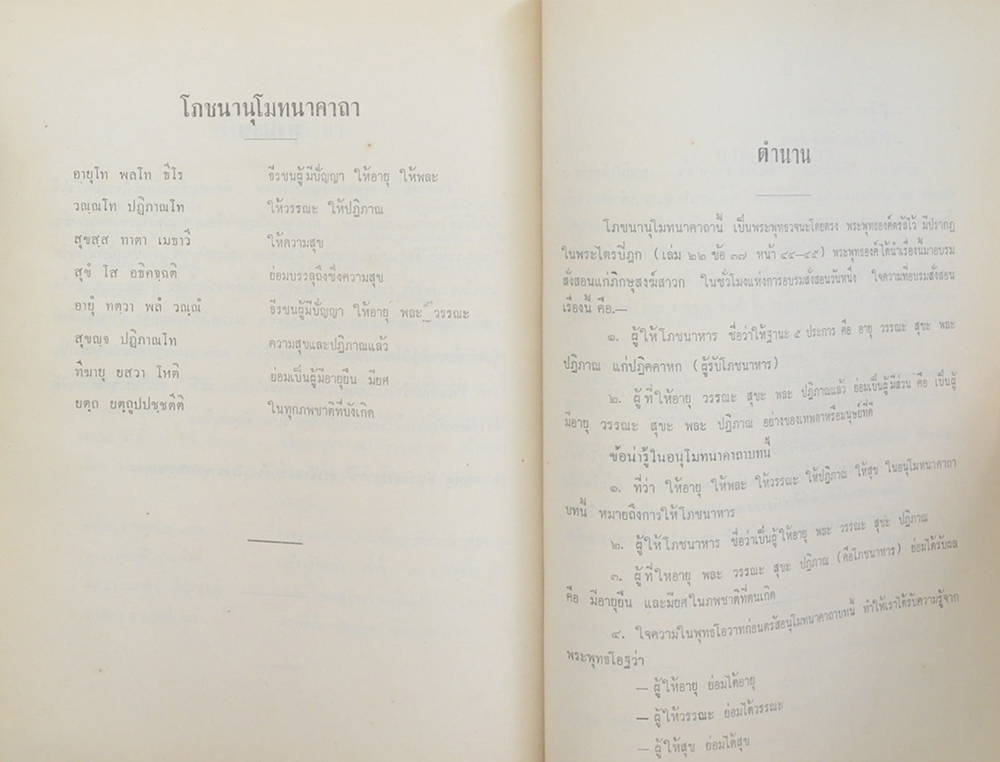 โภชนานุโมทนาคาถา
อายุโท พลโท ธีโร ธีรชนผู้มีปัญญา ให้อายุ ให้พละ
วณฺณโท ปฏิภาณโท ให้วรรณะ ให้ปฏิภาณ
สุขสฺส ทาตา เมธาวี ให้ความสุข
สุขํ โส อธิคจฺฉติ ย่อมบรรลุถึงซึ่งความสุข
อายุํ ทตฺวา พลํ วณฺณํ ธีรชนผู้มีปัญญา ให้อายุ พละ วรรณะ
สุขญฺจ ปฏิภาณโท ความสุขและปฏิภาณแล้ว
ทีฆายุ ยสวา โหติ ย่อมเป็นผู้มีอายุยืน มียศ
ยตฺถ ยตฺถูปปชฺชตีติ ในทุกภพชาติที่บังเกิด
ตำนาน
โภชนานุโมทนาคาถานี้ เป็นพระพุทธวจนะโดยตรง พระพุทธองค์ตรัสไว้ มีปรากฏ
ในพระไตรปิฎก (เล่ม ๒๒ ข้อ ๓๗ หน้า ๔๔–๔๕) พระพุทธองค์ได้นำเรื่องนี้มาอบรม
สั่งสอนแก่ภิกษุสงฆ์สาวก ในชั่วโมงแห่งการอบรมสั่งสอนวันหนึ่ง ใจความที่อบรมสั่งสอน
เรื่องนี้ คือ.—
๑. ผู้ให้โภชนาหาร ชื่อว่าให้ฐานะ ๕ ประการ คือ อายุ วรรณะ สุขะ พละ
ปฏิภาณ แก่ปฏิคคาหก (ผู้รับโภชนาหาร)
๒. ผู้ที่ให้อายุ วรรณะ สุขะ พละ ปฏิภาณแล้ว ย่อมเป็นผู้มีส่วน คือ เป็นผู้
มีอายุ วรรณะ สุขะ พละ ปฏิภาณ อย่างของเทพดาหรือมนุษย์ที่ดี
ข้อน่ารู้ในอนุโมทนาคาถาบทนี้
๑. ที่ว่า ให้อายุ ให้พละ ให้วรรณะ ให้ปฏิภาณ ให้สุข ในอนุโมทนาคาถา
บทนี้ หมายถึงการให้โภชนาหาร
๒. ผู้ให้โภชนาหาร ชื่อว่าเป็นผู้ให้อายุ พละ วรรณะ สุขะ ปฏิภาณ
๓. ผู้ที่ให้อายุ พละ วรรณะ สุขะ ปฏิภาณ (คือโภชนาหาร) ย่อมได้รับผล
คือ มีอายุยืน และมียศในภพชาติที่ตนเกิด
๔. ใจความในพุทธโอวาทก่อนตรัสอนุโมทนาคาถาบทนี้ ทำให้เราได้รับความรู้จาก
พระพุทธโอฐว่า
— ผู้ให้อายุ ย่อมได้อายุ
— ผู้ให้วรรณะ ย่อมได้วรรณะ
— ผู้ให้สุข ย่อมได้สุข